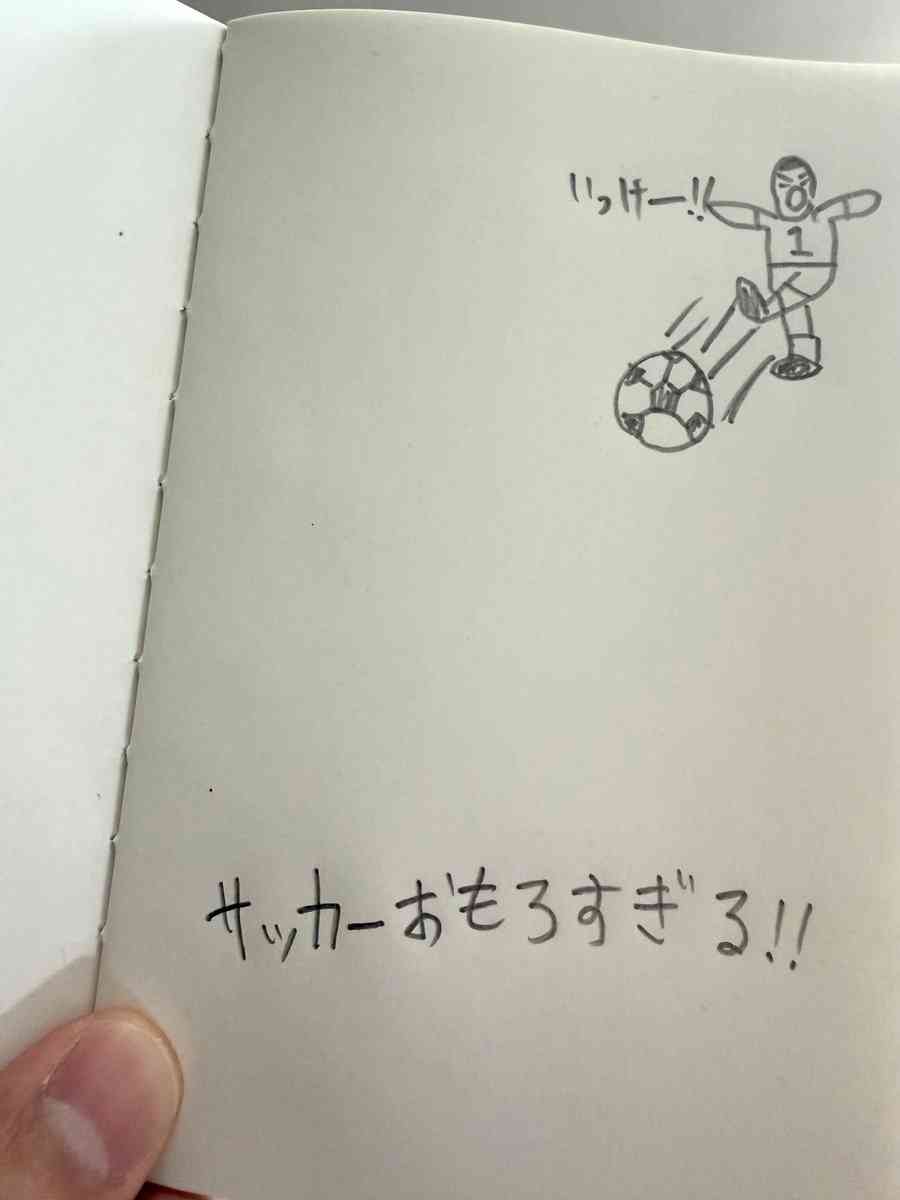 いっけー!!
1
サッカーおもろすぎる!!